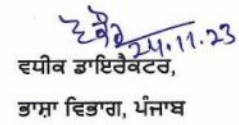 24.11.23
ਵਧੀਕ ਡਾਇਰੈਕਟਰ,
ਭਾਸ਼ਾ ਵਿਭਾਗ, ਪੰਜਾਬ